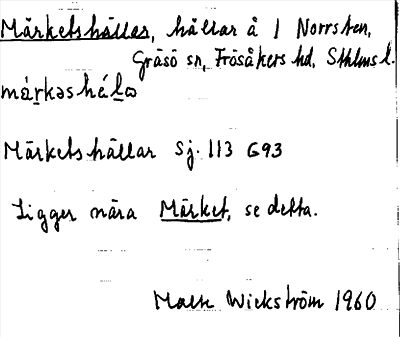 Märketshällar, hällar å 1 Norrsten,
Gräsö sn, Frösåkers hd, Sthlms l.
Märketshällar Sj. 113 G93
Ligger nära Märket, se detta.
Wickström 1960